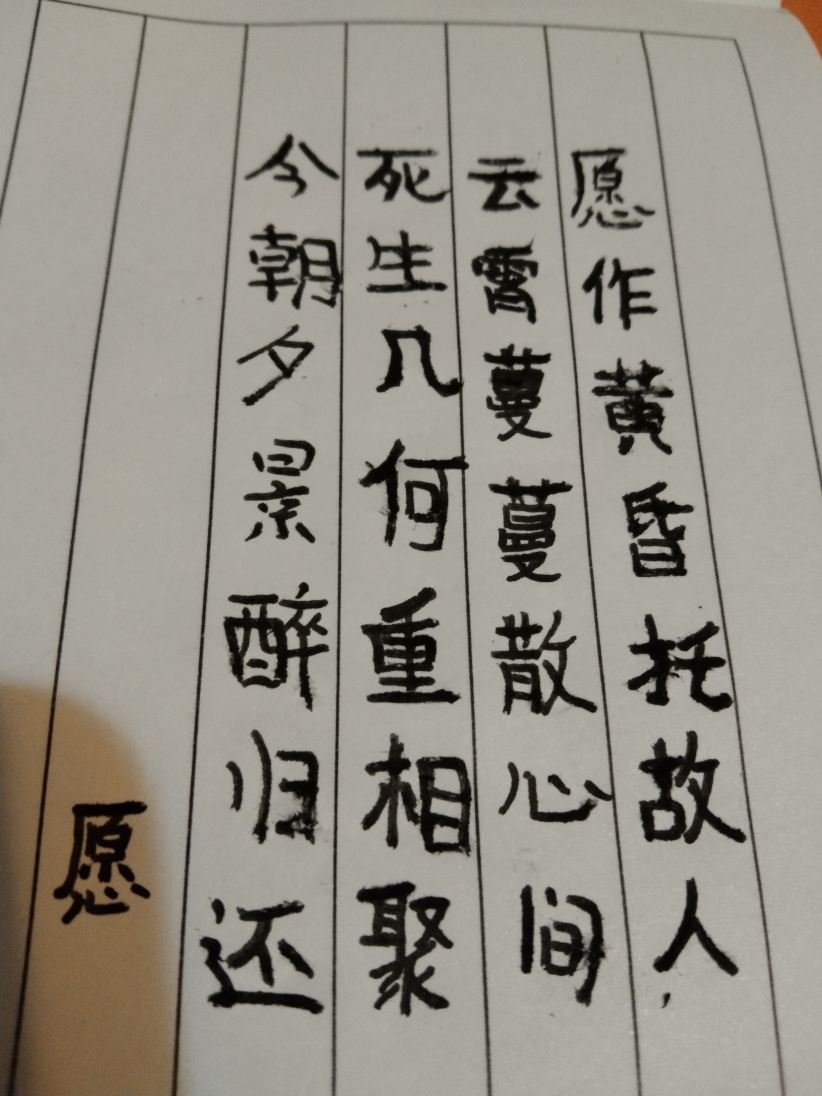 愿作黄昏托故人
云霄蔓蔓散心间
死生几何重相聚
今朝夕景醉归还
愿